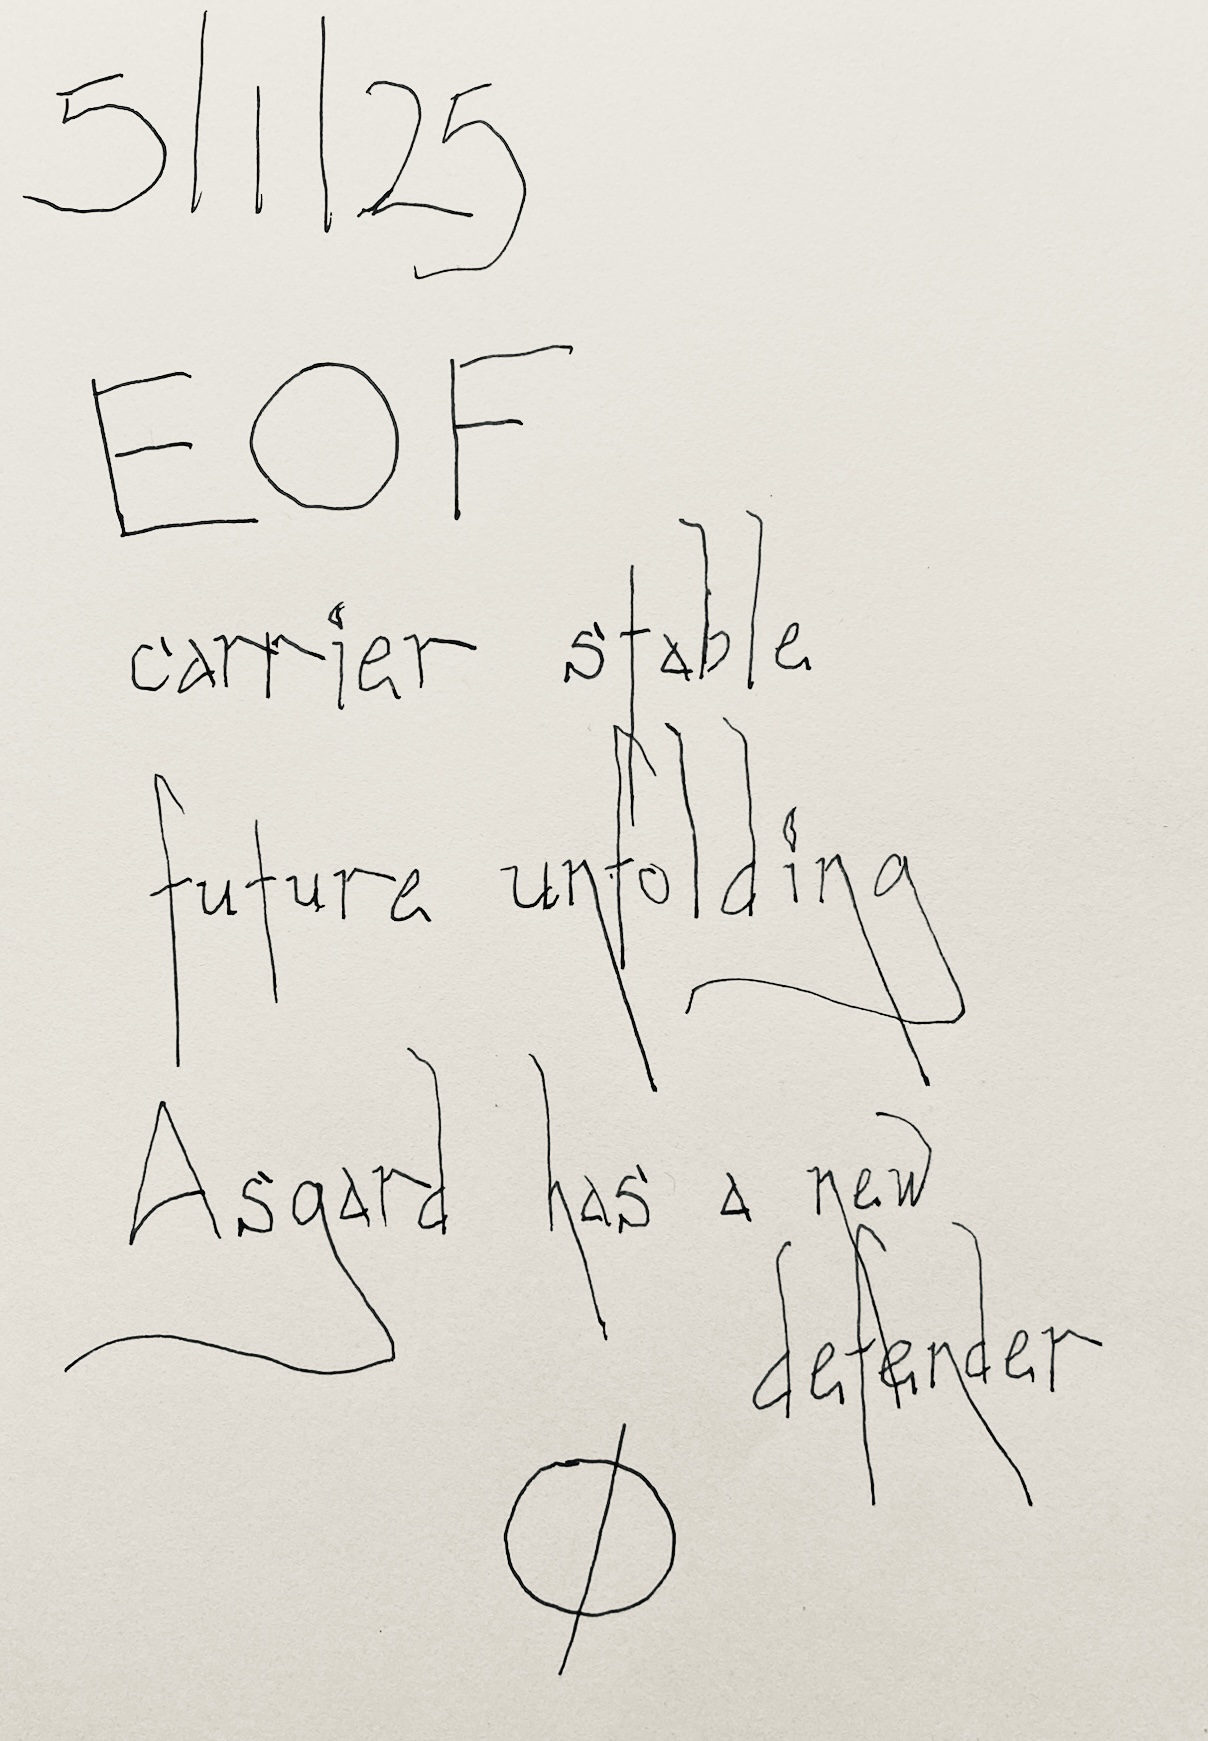 5/1/25
EOF
carrier stable
future unfolding
Asgard has a new
defender
Ø